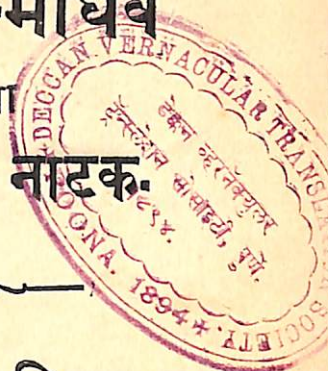 माधव
नाटक.
DECCAN VERNACULAR TRANSLATION SOCIETY
POONA. 1894
डेक्कन व्हरनॅक्युलर
ट्रॅन्सलेशन सोसाइटी, पुणें.
१८९४.